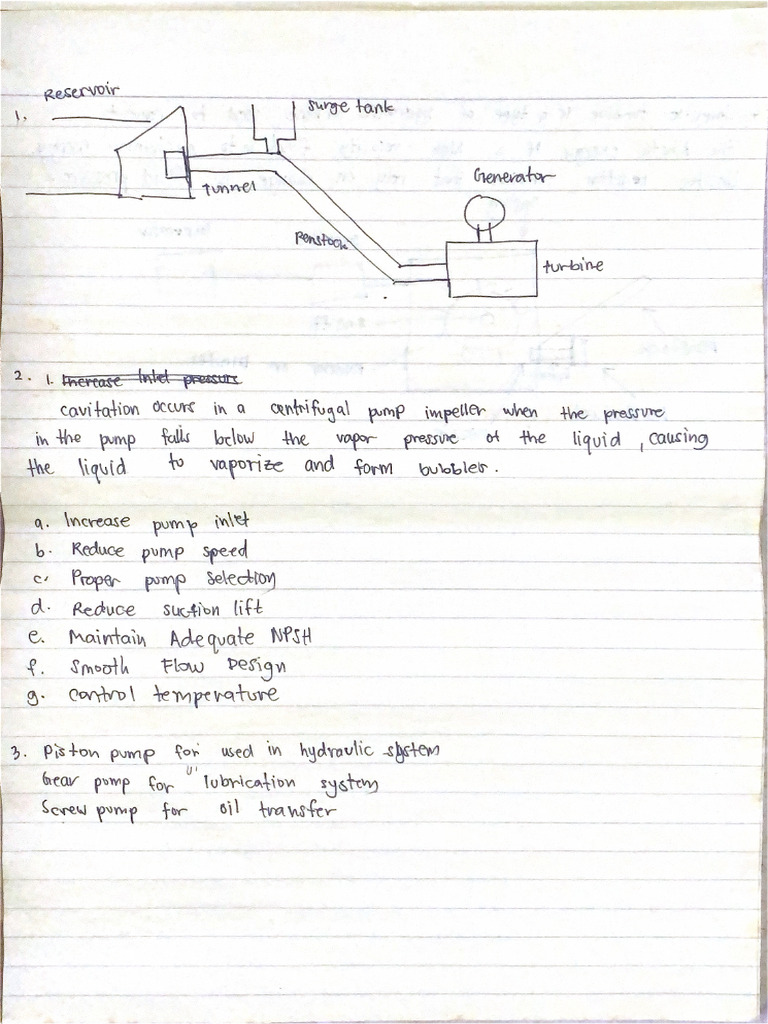 Reservoir
1.
surge tank
tunnel
Generator
Penstock
turbine
2. 1. Increase Inlet pressure
cavitation occurs in a centrifugal pump impeller when the pressure
in the pump falls below the vapor pressure of the liquid, causing
the liquid to vaporize and form bubbles.
a. Increase pump inlet
b. Reduce pump speed
c. Proper pump selection
d. Reduce suction lift
e. Maintain Adequate NPSH
f. Smooth Flow Design
g. control temperature
3. Piston pump for used in hydraulic system
Gear pump for lubrication system
Screw pump for oil transfer